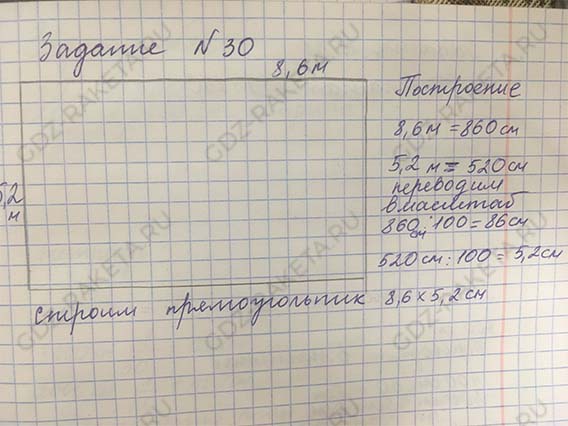 Задание №30
8,6м
5,2
м
Построение
8,6м = 860см
5,2 м = 520см
переводим
в масштаб
860 см : 100 = 86см
520 см : 100 = 5,2см
строим прямоугольник 8,6 х 5,2 см
GDZ-RAKETA.RU